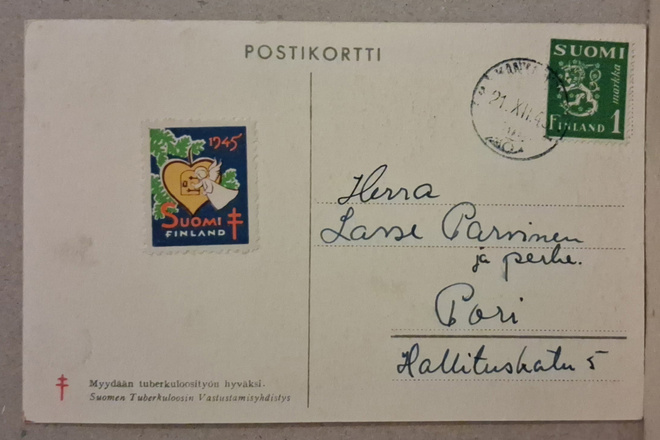 POSTIKORTTI
SUOMI
markka
FINLAND 1
21.XII.45
1945
SUOMI
FINLAND
Herra
Lasse Parvinen
ja perhe.
Pori
Hallituskatu 5
Myydään tuberkuloosityön hyväksi.
Suomen Tuberkuloosin Vastustamisyhdistys